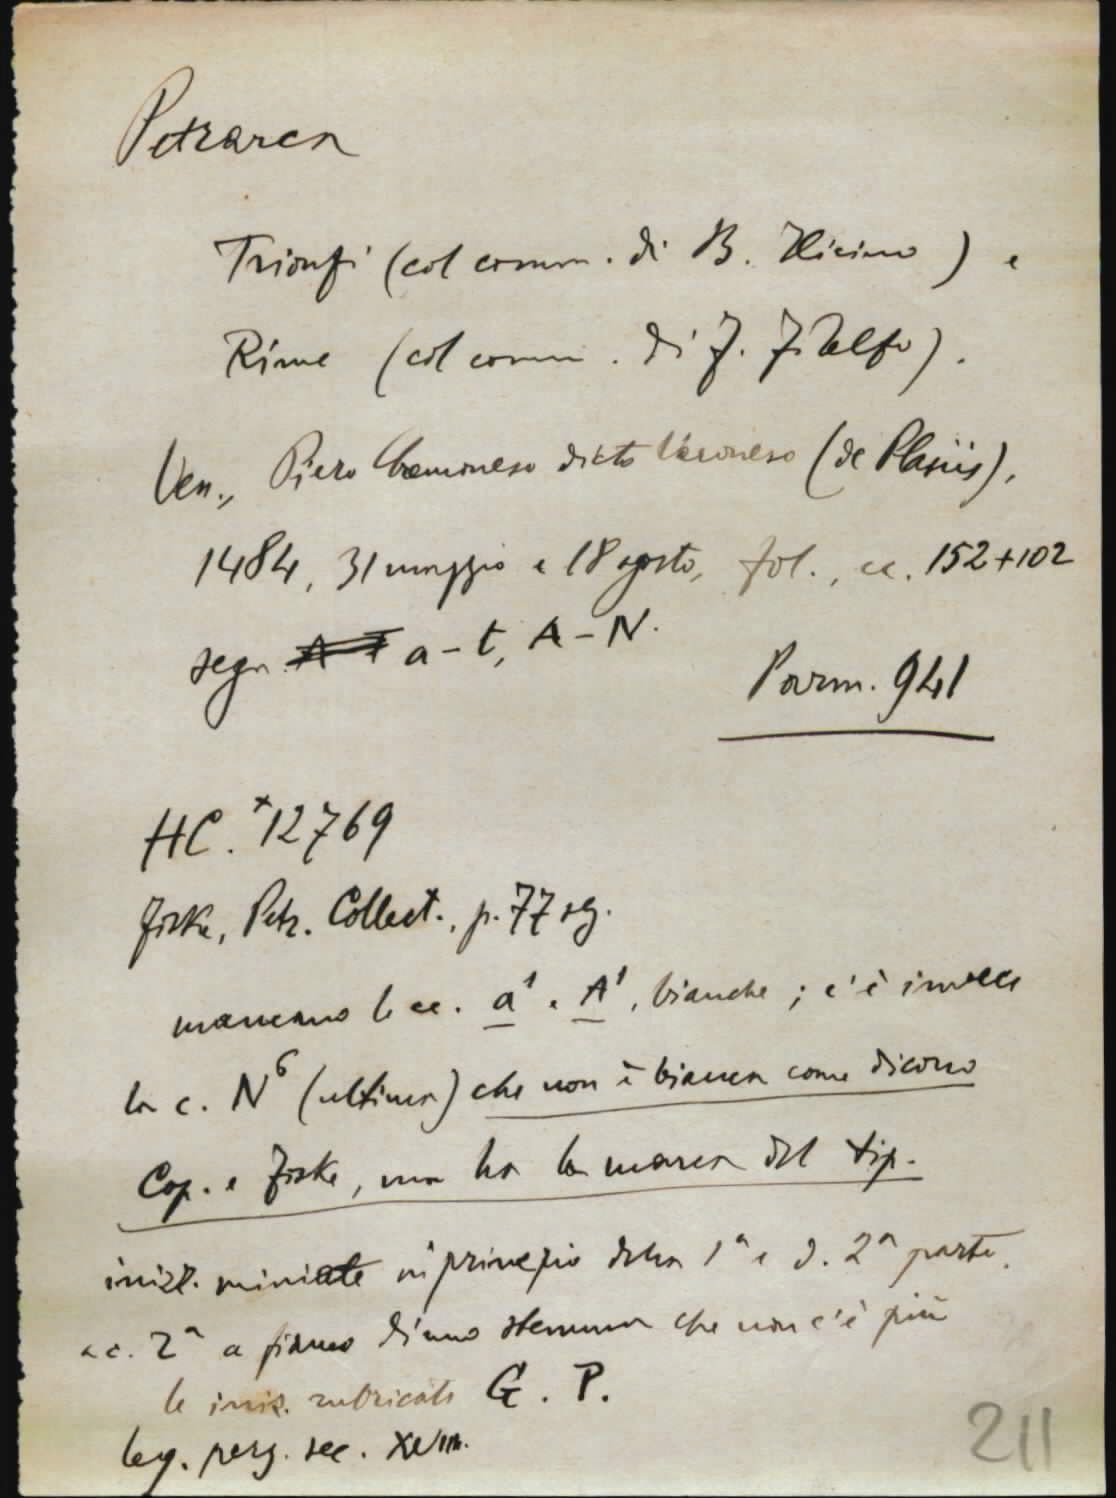 Petrarca
Trionfi (col comm. di B. Ilicino) e
Rime (col comm. di F. Filelfo).
Ven., Piero Cremoneso dicto Veroneso (de Plasiis),
1484, 31 maggio e 18 agosto, fol., cc. 152+102
segn. a-t, A-N.
Parm. 941
HC. *12769
Fiske, Petr. Collect., p. 77 sg.
mancano le cc. a¹ e A¹, bianche; c'è invece
la c. N⁶ (ultima) che non è bianca come dicono
Cop. e Fiske, ma ha la marca del tip.
iniz. miniate in principio della 1ª e d. 2ª parte.
a c. 2ª a fianco di uno stemma che non c'è più
le iniz. rubricate G. P.
leg. perg. sec. XVIII.
211